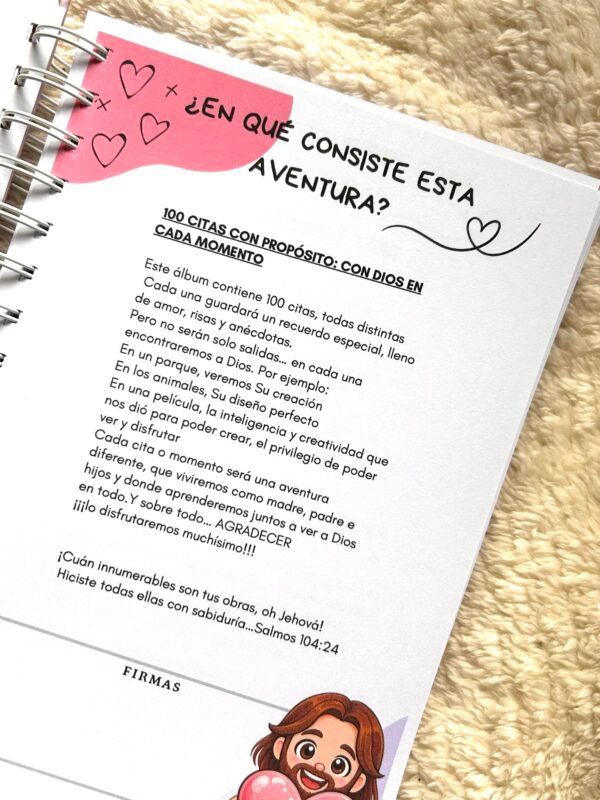 ¿EN QUÉ CONSISTE ESTA
AVENTURA?
100 CITAS CON PROPÓSITO: CON DIOS EN
CADA MOMENTO
Este álbum contiene 100 citas, todas distintas
Cada una guardará un recuerdo especial, lleno
de amor, risas y anécdotas.
Pero no serán solo salidas... en cada una
encontraremos a Dios. Por ejemplo:
En un parque, veremos Su creación
En los animales, Su diseño perfecto
En una película, la inteligencia y creatividad que
nos dió para poder crear, el privilegio de poder
ver y disfrutar
Cada cita o momento será una aventura
diferente, que viviremos como madre, padre e
hijos y donde aprenderemos juntos a ver a Dios
en todo. Y sobre todo... AGRADECER
¡¡¡lo disfrutaremos muchísimo!!!
¡Cuán innumerables son tus obras, oh Jehová!
Hiciste todas ellas con sabiduría...Salmos 104:24
FIRMAS